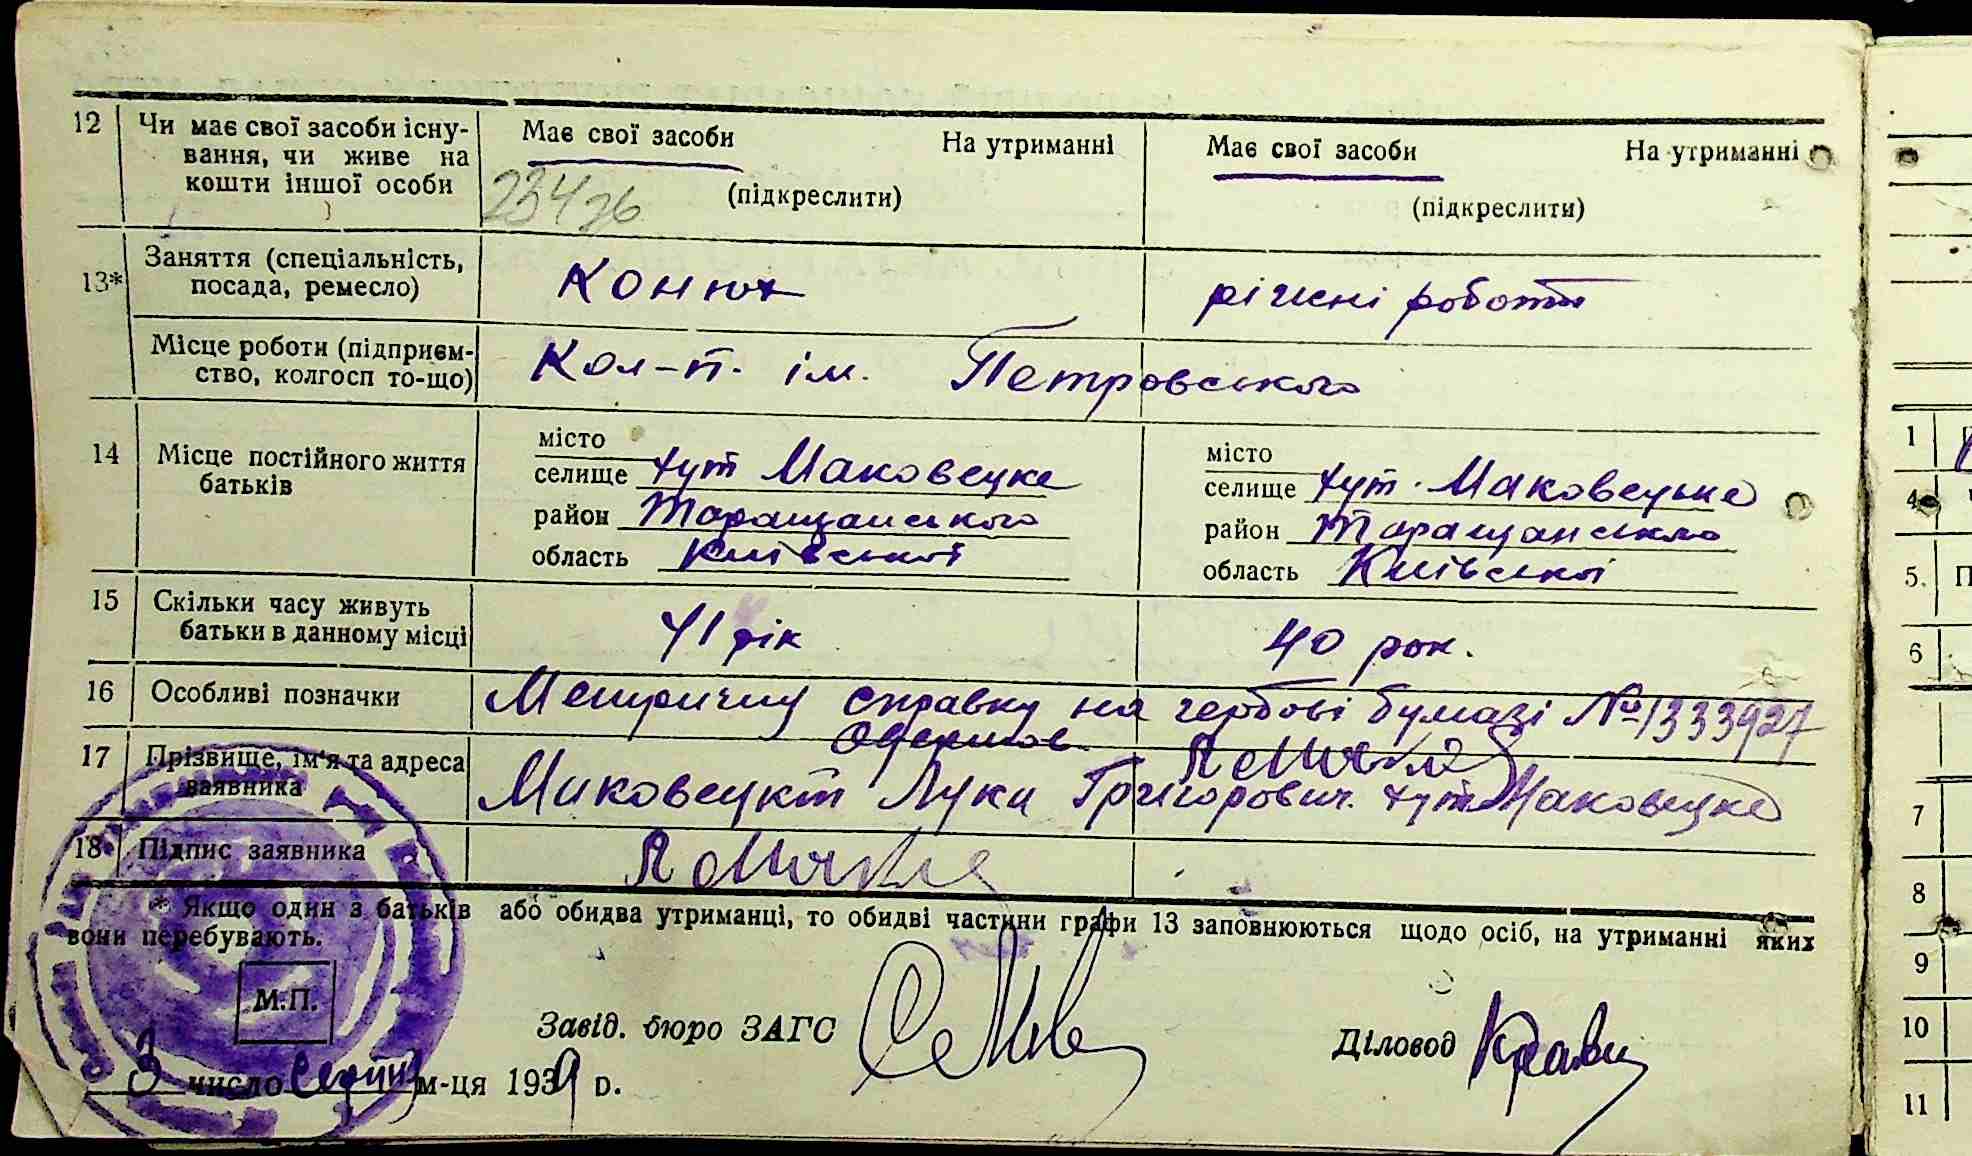 12 Чи має свої засоби існу- Має свої засоби На утриманні Має свої засоби На утриманні
вання, чи живе на
кошти іншої особи (підкреслити) (підкреслити)
13* Заняття (спеціальність, Конюх ріжні роботи
посада, ремесло)
Місце роботи (підприєм- Кол-п. ім. Петровського
ство, колгосп то-що)
14 Місце постійного життя місто місто
батьків селище хут Маковецке селище хут. Маковецьке
район Таращанського район Таращанського
область Київської область Київської
15 Скільки часу живуть 41 рік 40 рок.
батьки в данному місці
16 Особливі позначки Метричну справку на гербові бумазі № 1333927
одержав
17 Прізвище, ім'я та адреса Маковецкт Лука Григорович. хут Маковецке
заявника
18 Підпис заявника
* Якщо один з батьків або обидва утриманці, то обидві частини графи 13 заповнюються щодо осіб, на утриманні яких
вони перебувають.
М.П.
Завід. бюро ЗАГС Діловод
3 число серпня м-ця 1939 р.
1
4
5. П
6
7
8
9
10
11